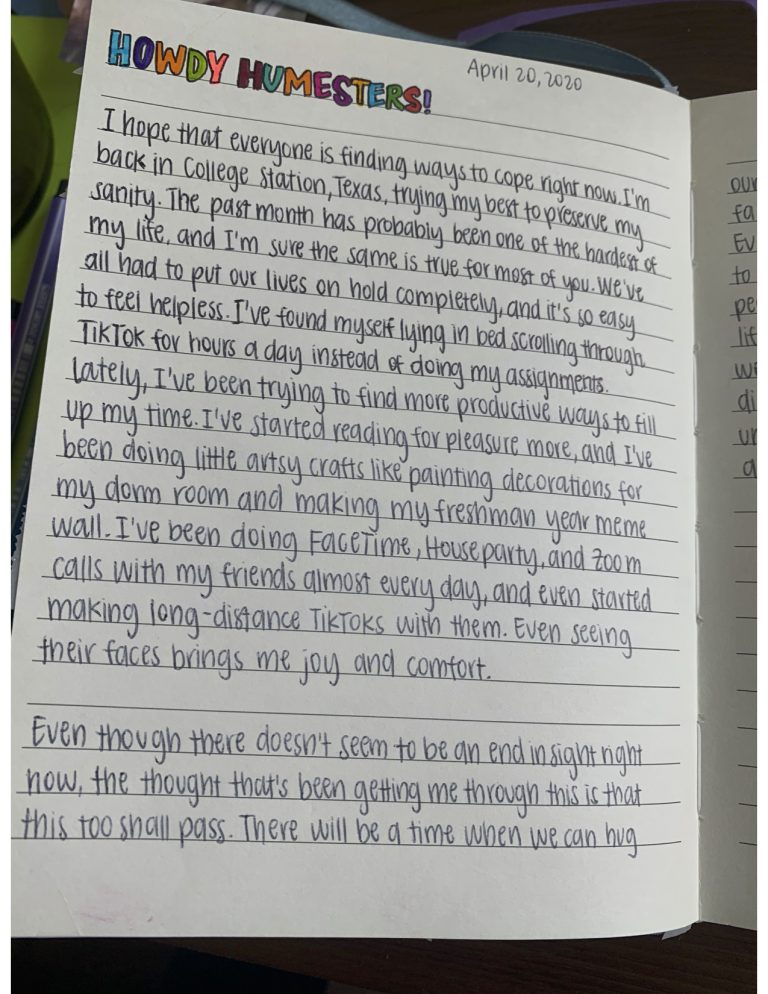 HOWDY HUMESTERS!
April 20, 2020
I hope that everyone is finding ways to cope right now. I'm
back in College Station, Texas, trying my best to preserve my
sanity. The past month has probably been one of the hardest of
my life, and I'm sure the same is true for most of you. We've
all had to put our lives on hold completely, and it's so easy
to feel helpless. I've found myself lying in bed scrolling through
TikTok for hours a day instead of doing my assignments.
Lately, I've been trying to find more productive ways to fill
up my time. I've started reading for pleasure more, and I've
been doing little artsy crafts like painting decorations for
my dorm room and making my freshman year meme
wall. I've been doing FaceTime, Houseparty, and Zoom
calls with my friends almost every day, and even started
making long-distance TikToks with them. Even seeing
their faces brings me joy and comfort.
Even though there doesn't seem to be an end in sight right
now, the thought that's been getting me through this is that
this too shall pass. There will be a time when we can hug
our
fa
Ev
to
pe
lif
wi
di
un
a